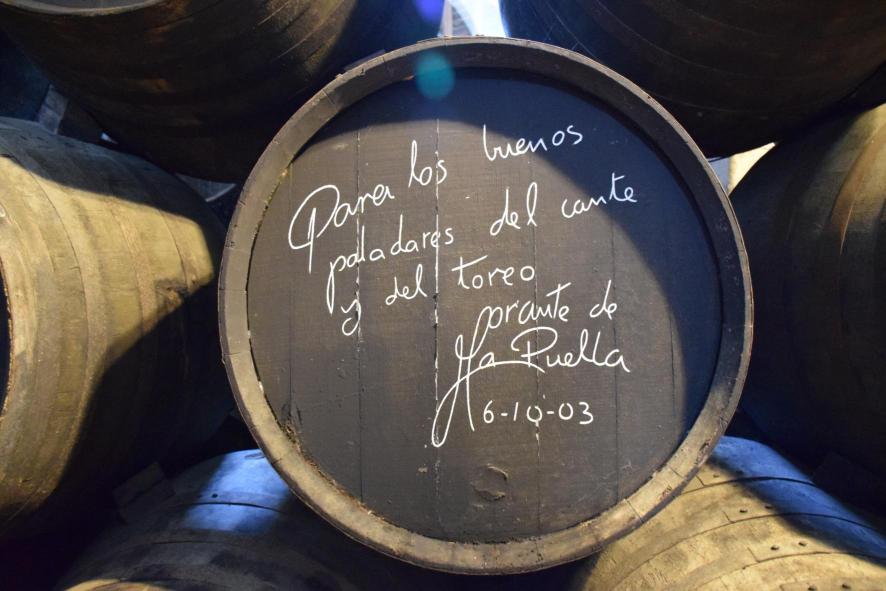 Para los buenos
paladares del cante
y del toreo
Morante de
La Puebla
6-10-03